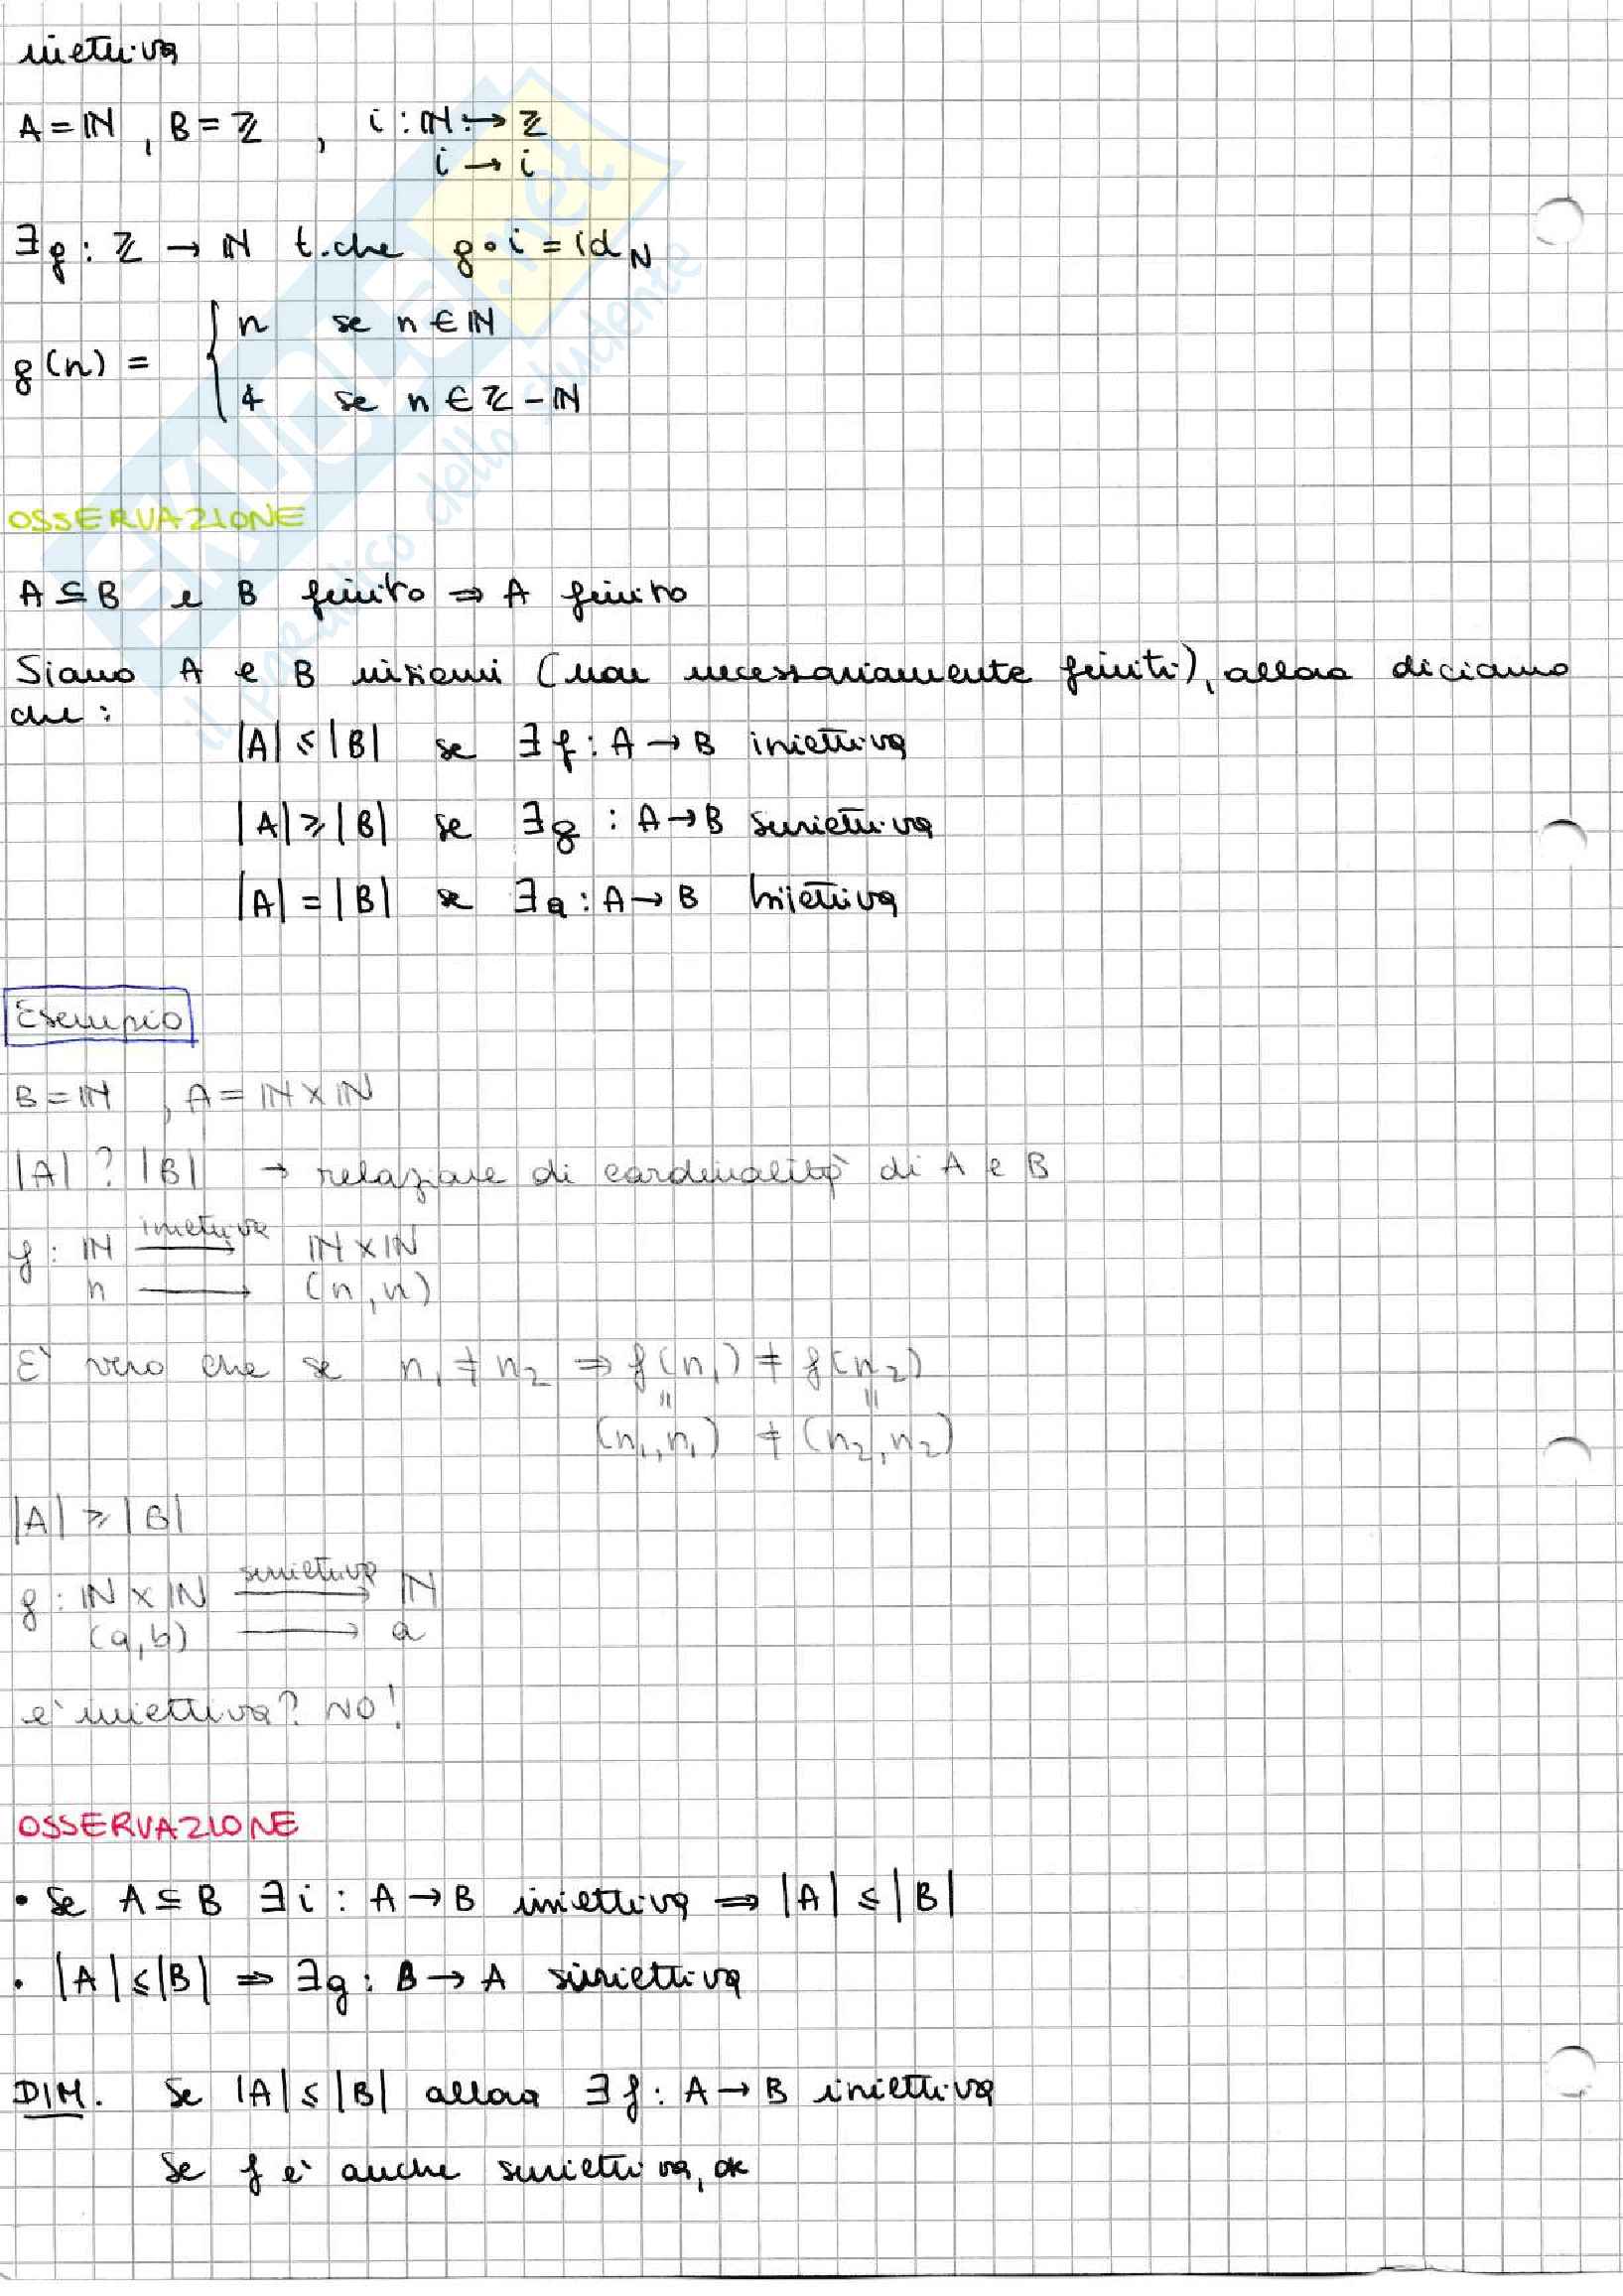 iniettiva
A = ℕ , B = ℤ , i : ℕ → ℤ
i → i
∃ g : ℤ → ℕ t.che g∘i = id_N
g(n) = { n se n ∈ ℕ
4 se n ∈ ℤ - ℕ
OSSERVAZIONE
A ⊆ B e B finito ⇒ A finito
Siano A e B insiemi (non necessariamente finiti), allora diciamo
che:
|A| ≤ |B| se ∃ f : A → B iniettiva
|A| ≥ |B| se ∃ g : A → B suriettiva
|A| = |B| se ∃ a : A → B biiettiva
Esempio
B = ℕ , A = ℕ × ℕ
|A| ? |B| → relazione di cardinalità di A e B
f : ℕ iniettiva → ℕ × ℕ
n → (n, n)
E' vero che se n₁ ≠ n₂ ⇒ f(n₁) ≠ f(n₂)
= =
(n₁, n₁) ≠ (n₂, n₂)
|A| ≥ |B|
g : ℕ × ℕ suriettiva → ℕ
(a, b) → a
e' iniettiva? NO!
OSSERVAZIONE
• Se A ⊆ B ∃ i : A → B iniettiva ⇒ |A| ≤ |B|
• |A| ≤ |B| ⇒ ∃ g : B → A suriettiva
DIM. Se |A| ≤ |B| allora ∃ f : A → B iniettiva
Se f e' anche suriettiva, ok
SKUOLA.net
il paradiso dello studente